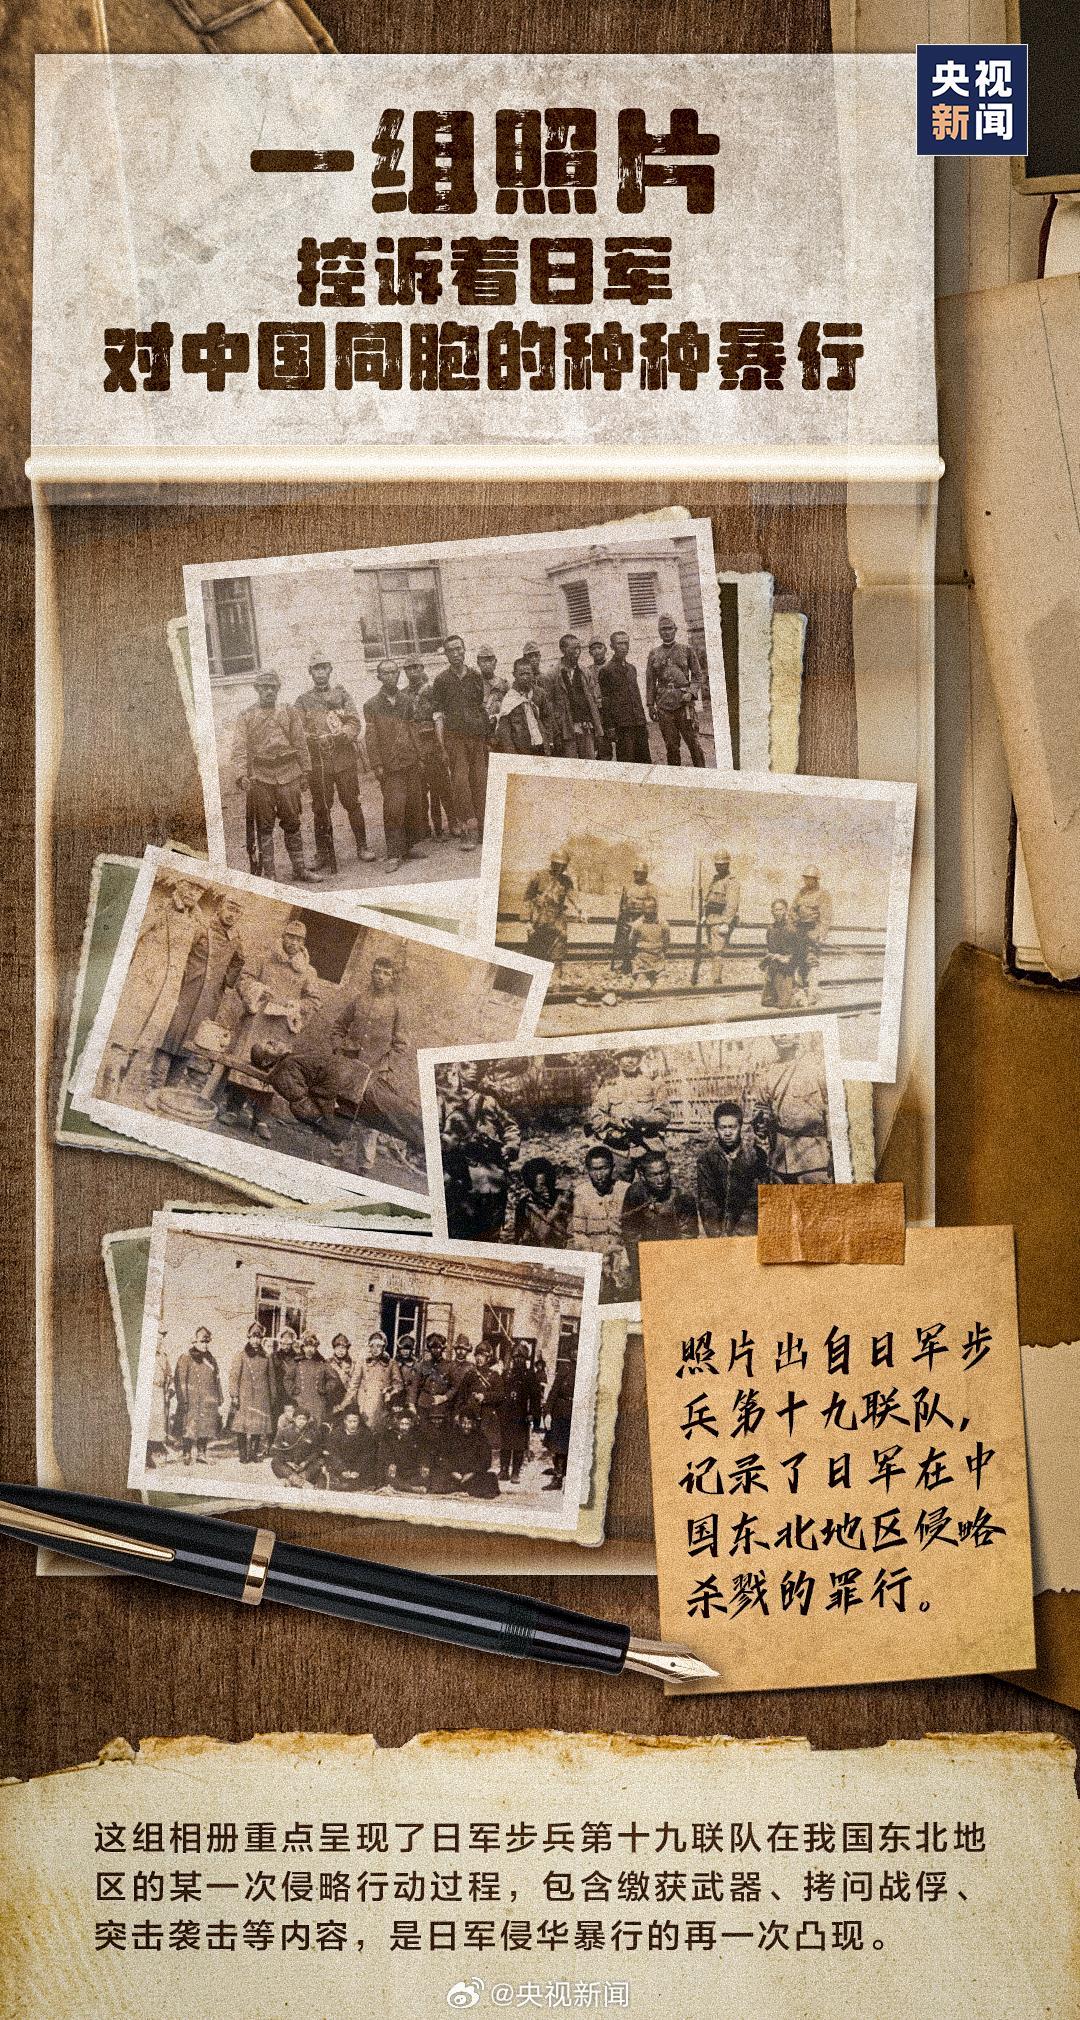 央视
新闻
一组照片
控诉着日军
对中国同胞的种种暴行
照片出自日军步
兵第十九联队,
记录了日军在中
国东北地区侵略
杀戮的罪行。
这组相册重点呈现了日军步兵第十九联队在我国东北地
区的某一次侵略行动过程，包含缴获武器、拷问战俘、
突击袭击等内容，是日军侵华暴行的再一次凸现。
@央视新闻